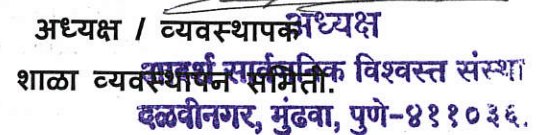 अध्यक्ष / व्यवस्थापक
अध्यक्ष
शाळा व्यवस्थापन समिती.
आदर्श सार्वजनिक विश्वस्त संस्था
दळवीनगर, मुंढवा, पुणे-४११०३६.